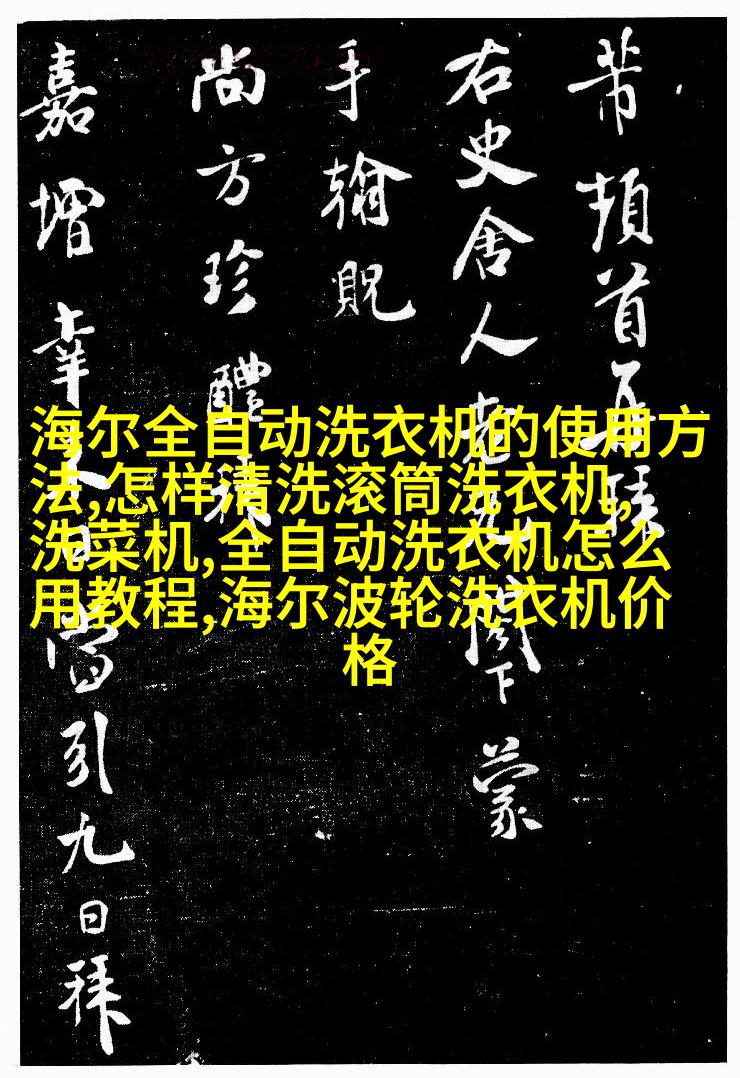 海尔全自动洗衣机的使用方
法,怎样清洗滚筒洗衣机,
洗菜机,全自动洗衣机怎么
用教程,海尔波轮洗衣机价
格
芾頓首再拜
右史舍人老兄閣下蒙
手翰貺
尚方珍醴
嘉增幸引九日拜